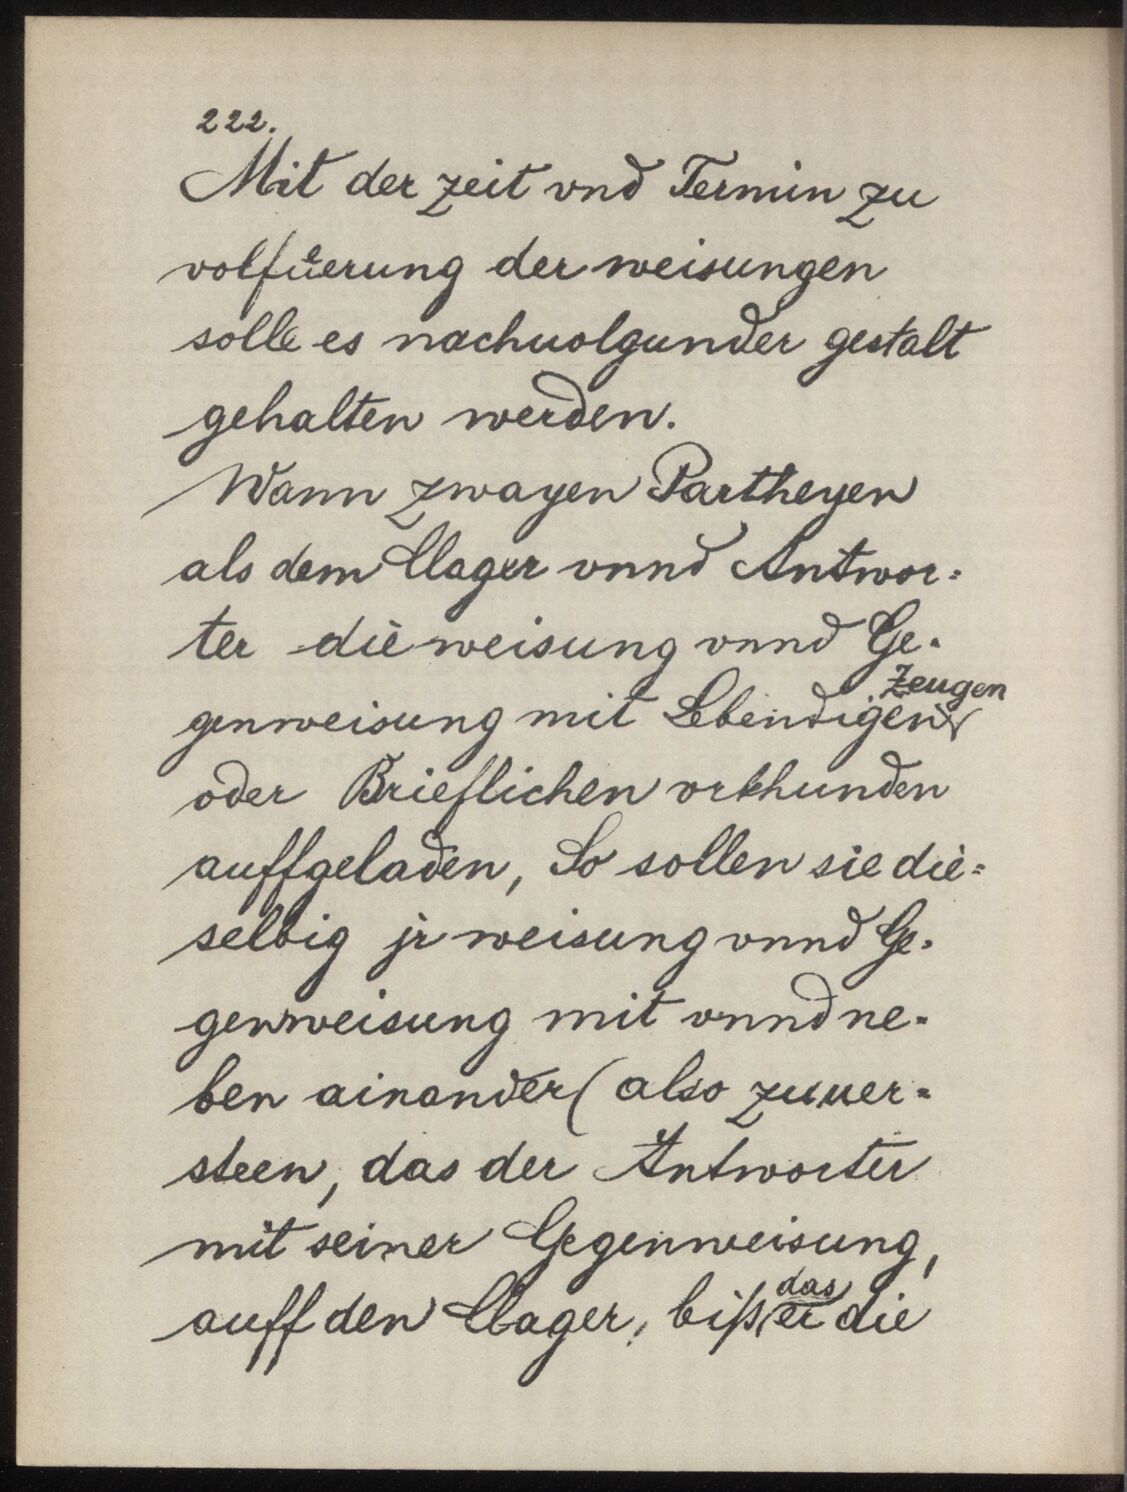 222.
Mit der zeit vnd Termin zu
volfuͤerung der weisungen
solle es nachuolgunder gestalt
gehalten werden.
Wann zwayen Partheyen
als dem Clager vnnd Antwor=
ter die weisung vnnd Ge=
genweisung mit Lebendigen Zeugen
oder Brieflichen vrkhunden
auffgeladen, So sollen sie die=
selbig jr weisung vnnd Ge=
genweisung mit vnnd ne=
ben ainander (also zuuer=
steen, das der Antworter
mit seiner Gegenweisung,
auff den Clager, biß das er die